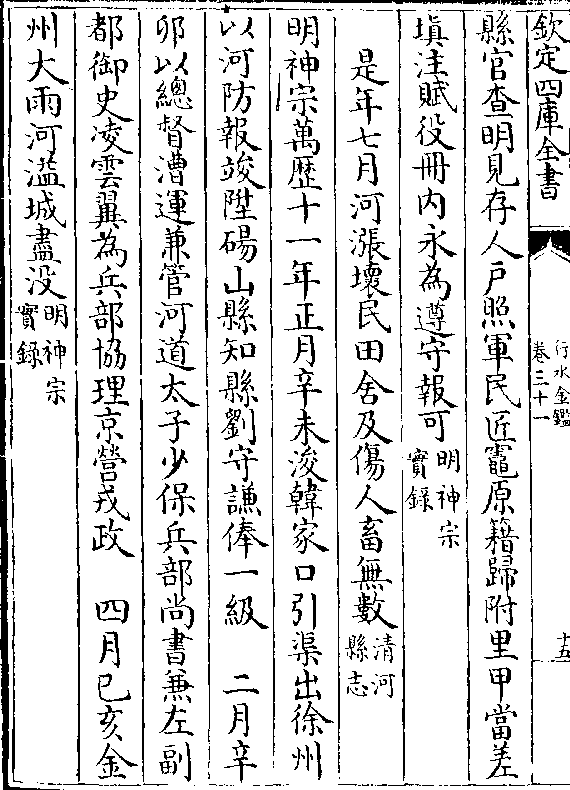 欽定四庫全書
行水金鑑
卷三十一
十五
縣官查明見存人戶照軍民匠竈原籍歸附里甲當差
填注賦役冊内永為遵守報可明神宗實錄
是年七月河漲壞民田舍及傷人畜無數清河縣志
明神宗萬歴十一年正月辛未浚韓家口引渠出徐州
以河防報竣陞碭山縣知縣劉守謙俸一級　二月辛
夘以總督漕運兼管河道太子少保兵部尚書兼左副
都御史凌雲翼為兵部協理京營戎政　四月已亥金
州大雨河溢城盡没明神宗實錄